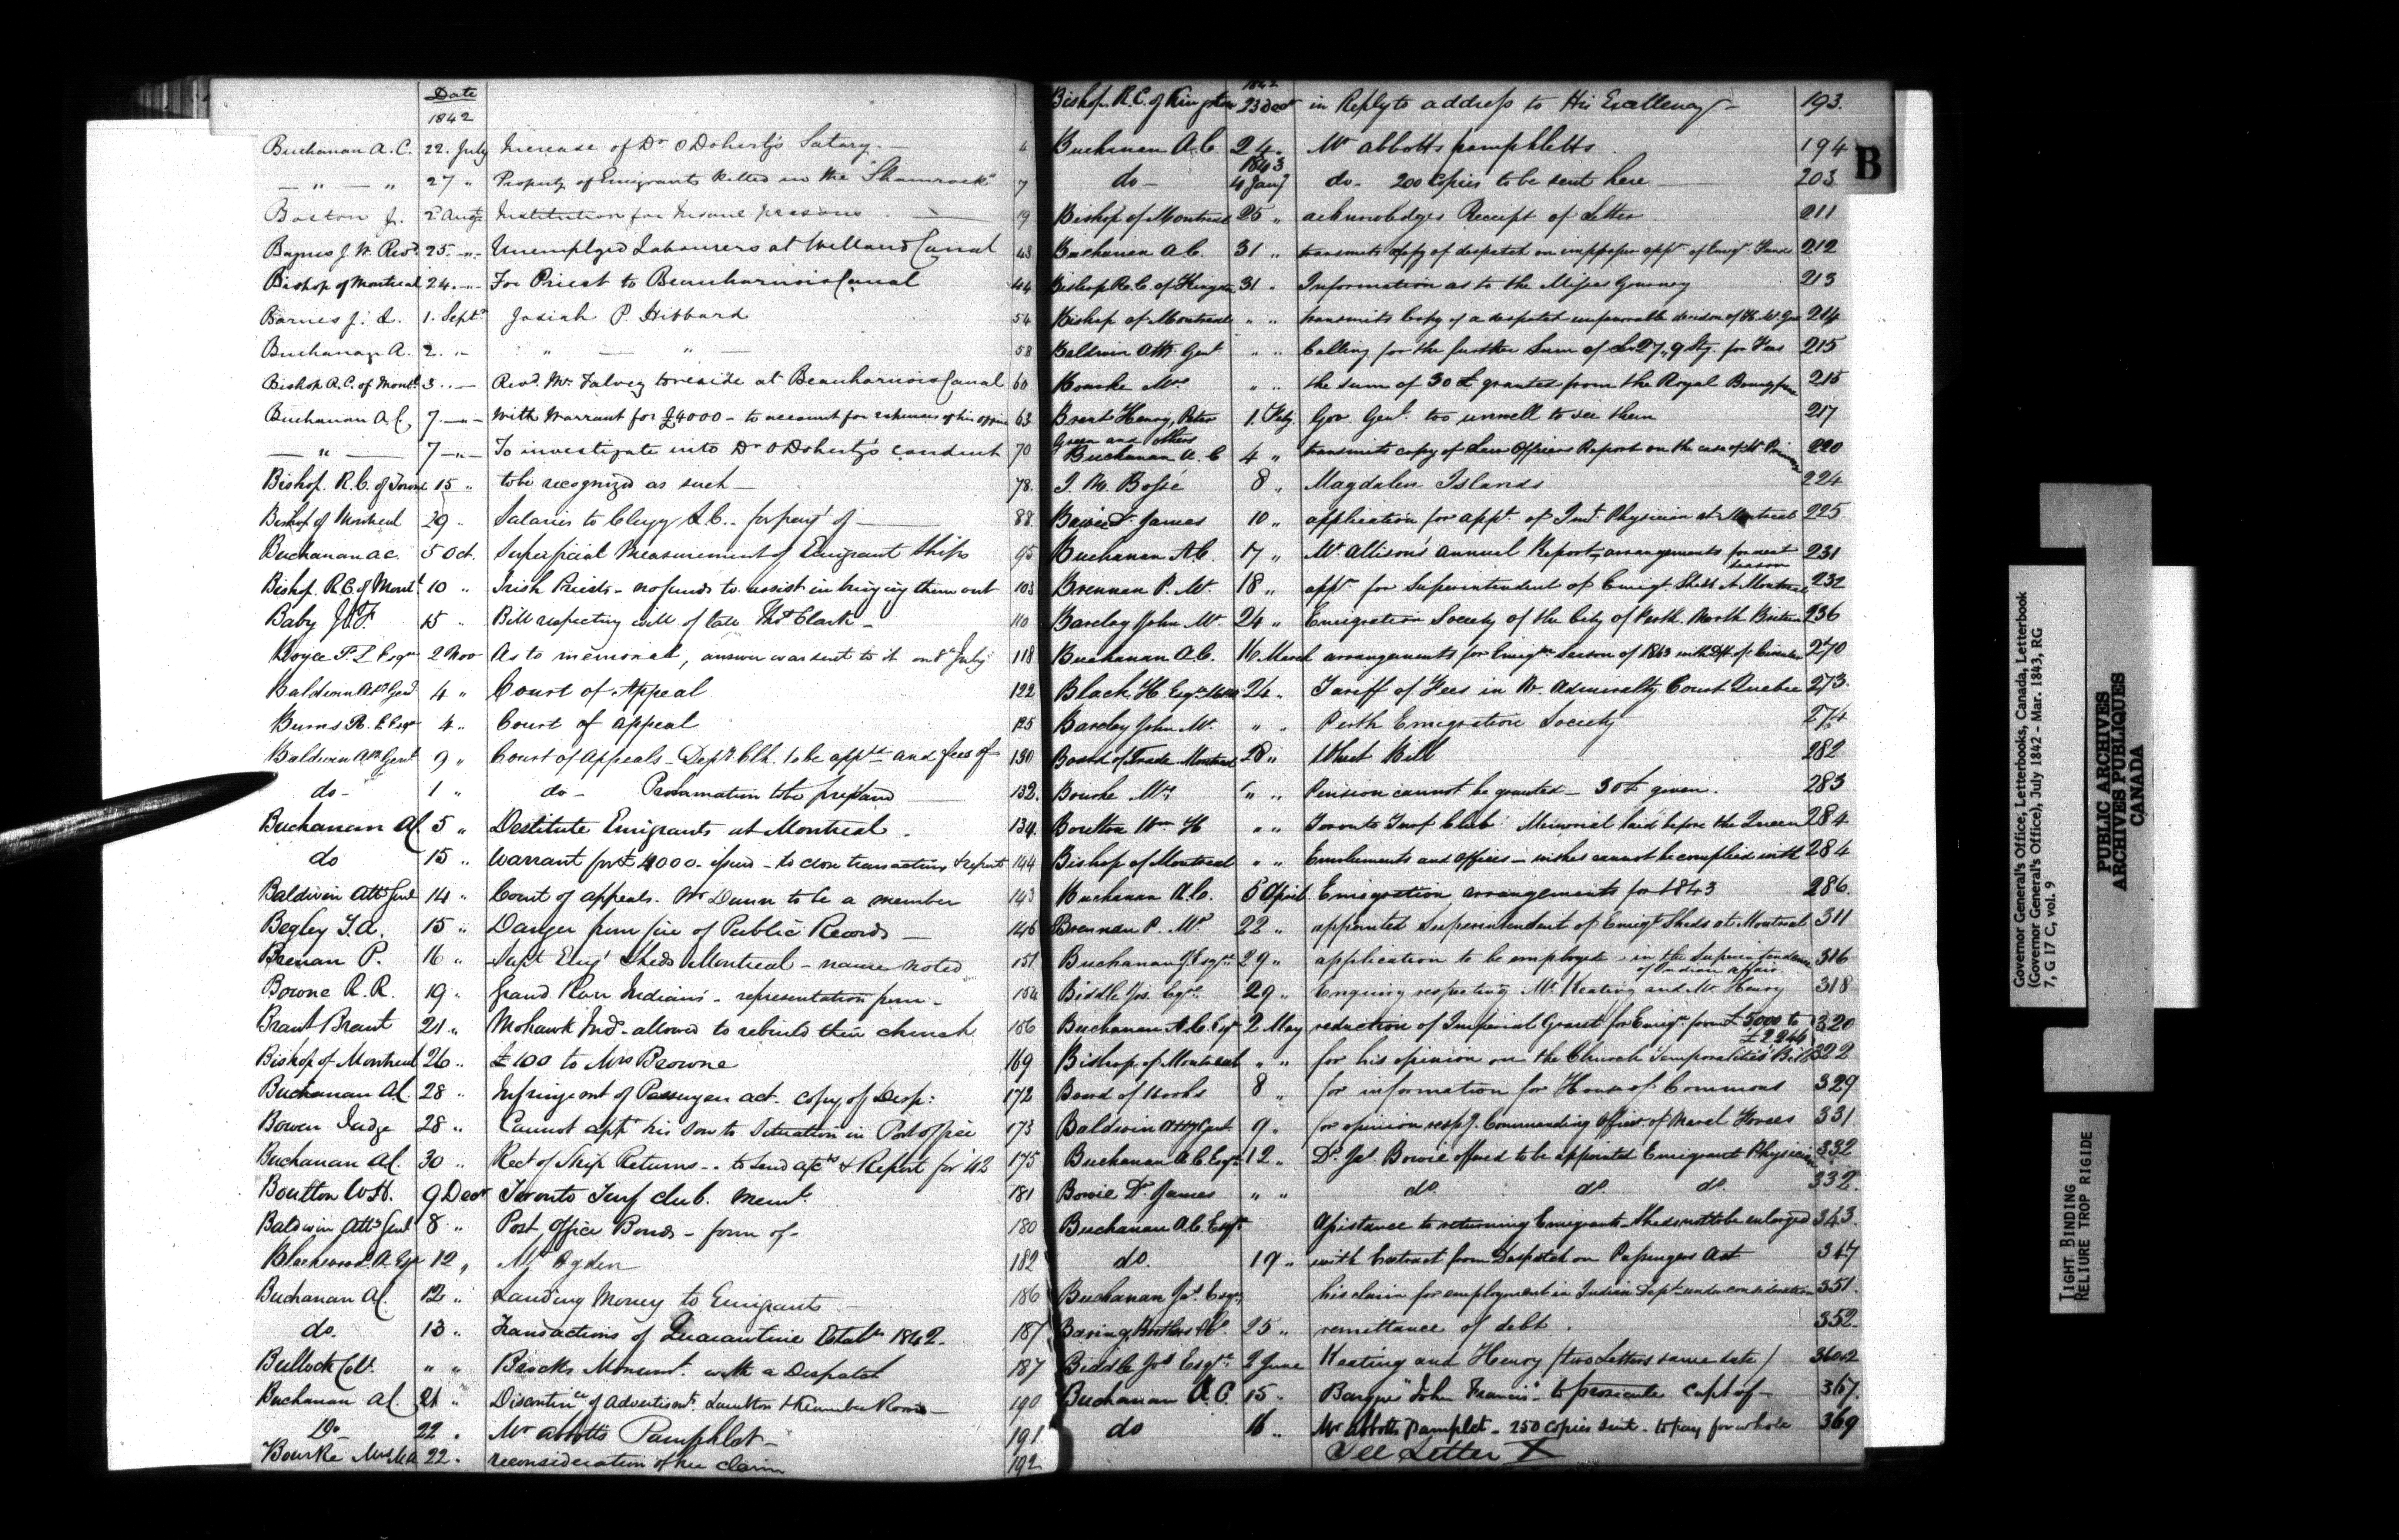 Date
1842
Buchanan A. C. 22. July Increase of Dr O'Doherty's Salary 6
— " — " 27 " Property of Emigrants killed in the "Shamrock" 7
Boston J. 2 Augt Institution for Insane persons 19
J. W. Revd 25. Unemployed Labourers at Welland Canal 43
Bishop of Montreal 24. For Priest to Beauharnois Canal 44
Barnes J. 1. Sept Josiah P. Hibbard 54
Buchanan A. 2. " — " — 58
Bishop R.C. of Montl 3. Revd Mr Falvey to reside at Beauharnois Canal 60
Buchanan A.C. 7. With Warrant for £4000 - to account for expenses of his office 63
— " — 7 To investigate into Dr O'Doherty's conduct 70
Bishop R.C. of 15 " to be recognized as such 78.
Bishop of Montreal 29 " Salaries to Clergy L.C. for payt of 88
Buchanan A C. 5 Oct. Superficial Measurement of Emigrant Ships 95
Bishop R.C. of Montl 10 " Irish Priests - no funds to assist in bringing them out 103
Baby J. F. 15 " Bill respecting will of late Thos Clark - 110
Boyce P. L Esqr 2 Nov As to memorial, answer was sent to it on 8 July 118
Baldwin Att Genl 4 " Court of Appeal 122
Burns R. E Esqr 4 " Court of Appeal 125
Baldwin Att Genl 9 " Court of Appeals - Depy Clk. to be appd and fees of 130
do - 1 " do - Proclamation to be prepared 132.
Buchanan A C 5 " Destitute Emigrants at Montreal . 134.
do 15 " Warrant for £4000 issued - to close transactions & report 144
Baldwin Atty Genl 14 " Court of Appeals. Mr Dunn to be a member 143
Begley T. A. 15 " Danger from fire of Public Records — 146
Brenan P. 16 " Supt Emigt Sheds Montreal - name noted 151
Bowne R. R. 19 " Grand River Indians - representation from - 154
Brant Brant 21 " Mohawk Inds - allowed to rebuild their church 156
Bishop of Montreal 26 " £100 to Mrs Browne 169
Buchanan A C. 28 " Infringemt of Passenger act. copy of Desp: 172
Bowen Judge 28 " Cannot appt his son to Situation in Post office 173
Buchanan A C. 30 " Rect of Ship Returns - to send accts & Report for '42 175
Boulton W. H. 9 Decr Toronto Turf club. Meml. 181
Baldwin Atty Genl 8 " Post Office Bonds - form of - 180
Blackwood A Esqr 12 " Mr Ogden 182
Buchanan A C. 12 " Landing Money to Emigrants 186
do. 13 " Transactions of Quarantine Establt 1842. 187
Bullock Col. " " Brocks Monumt. with a Despatch 187
Buchanan A C. 21 " Discontince of Advertisemt. Hamilton 190
Do - 22 . Mr Abbotts Pamphlet - 191
Bourke Mrs 22 . reconsideration of her claim 192
1842
Bishop R.C. of Kingston 23 Decr in Reply to address to His Excellency - 193.
Buchanan A.C. 24. Mr Abbotts pamphletts 194
1843
do - 4 Jany do - 200 Copies to be sent here 203
B
Bishop of Montreal 25 " acknowledges Receipt of Letter 211
Buchanan A.C. 31 " transmits copy of despatch on improper appn of Emigt Fund 212
Bishop R.C. of Kingston 31 " Information as to the Misses Gourney 213
Bishop of Montreal " " transmits copy of a despatch unfavorable decision of H. M. Gov 214
Baldwin Att Genl " " Calling for the further Sum of £27,,9 Stg. for Fees 215
Bourke Mrs " " the sum of 30 £ granted from the Royal Bounty 215
Brant Henry, Peter 1. Feby Gov. Genl. too unwell to see them 217
Green and others
Buchanan A. C 4 " transmits copy of Law Officers Report on the case of 220
J. N. Bossé 8 " Magdalen Islands 224
Bowie Dr James 10 " application for appt. of Physician at Montreal 225
Buchanan A.C. 17 " Mr Allison's annual Report, arrangements for next 231
season
Brennan P. Mr 18 " appn for Superintendent of Emigt Sheds at Montreal 232
Barclay John Mr. 24 " Emigration Society of the City of Perth. North Britain 236
Buchanan A.C. 16 March arrangements for Emign Season of 1843 270
Black H. Esqr 24 " Tariff of Fees in V. Admiralty Court Quebec 273.
Barclay John Mr. " " Perth Emigration Society 274
Board of Trade Montreal 28 " Wheat Bill 282
Bourke Mrs " " Pension cannot be granted - 30 £ given. 283
Boulton Wm H " " Toronto Turf Club Memorial laid before the Queen 284
Bishop of Montreal " " Emoluments and offices - wishes cannot be complied with 284
Buchanan A.C. 5 April Emigration arrangements for 1843 286.
Brennan P. Mr 22 " appointed Superintendent of Emigt Sheds at Montreal 311
Buchanan J. Esqre 29 " application to be employed in the Superintendence 316
of Indian affairs
Biddle Jos. Esqre 29 " Enquiry respecting Mr. Keating and Mr. Henry 318
Buchanan A.C. Esqr 2 May reduction of Imperial Grant for Emign from £5000 to 320
£2244
Bishop of Montreal " " for his opinion on the Church Temporalities Bill 322
Board of Works 8 " for information for House of Commons 329
Baldwin Atty Genl 9 " for opinion respg. Commanding Officer of Naval Forces 331.
Buchanan A.C. Esqr 12 " Dr Jas. Bowie offered to be appointed Emigrant Physician 332
Bowie Dr James " " do. do. do. 332.
Buchanan A.C. Esqr Assistance to returning Emigrants - Sheds not to be enlarged 343.
do. 19 " with Extract from Despatch on Passengers Act 347
Buchanan Jas. Esqr his claim for employment in Indian Dept under consideration 351.
Baring Brothers & Co. 25 " remittance of debt . 352.
Biddle Jos Esqre 2 June Keating and Henry (two Letters same date) 360.2
Buchanan A C. 15. Barque "John Francis" - to prosecute Capt of - 367.
do 16 " Mr Abbotts Pamplet - 250 copies sent - to pay for whole 369
See Letter X
Governor General's Office, Letterbooks, Canada, Letterbook
(Governor General's Office), July 1842 - Mar. 1843, RG
7, G 17 C, vol. 9
PUBLIC ARCHIVES
ARCHIVES PUBLIQUES
CANADA
TIGHT BINDING
RELIURE TROP RIGIDE